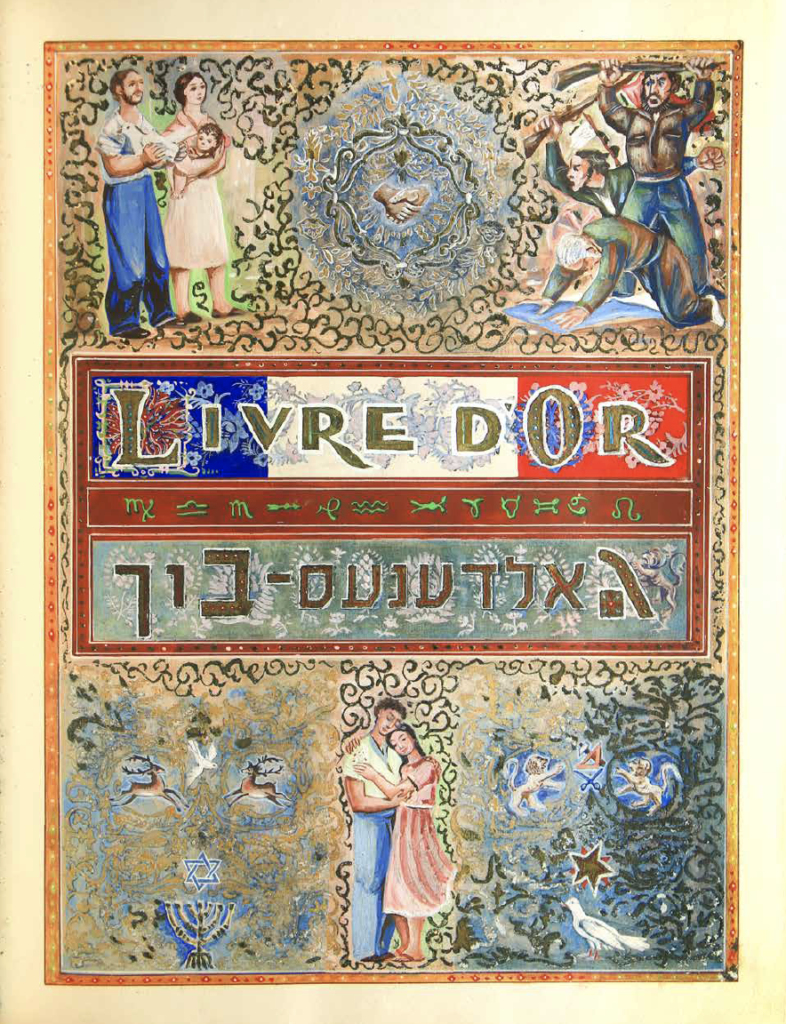 LIVRE D'OR
גאלדענעס-בוך